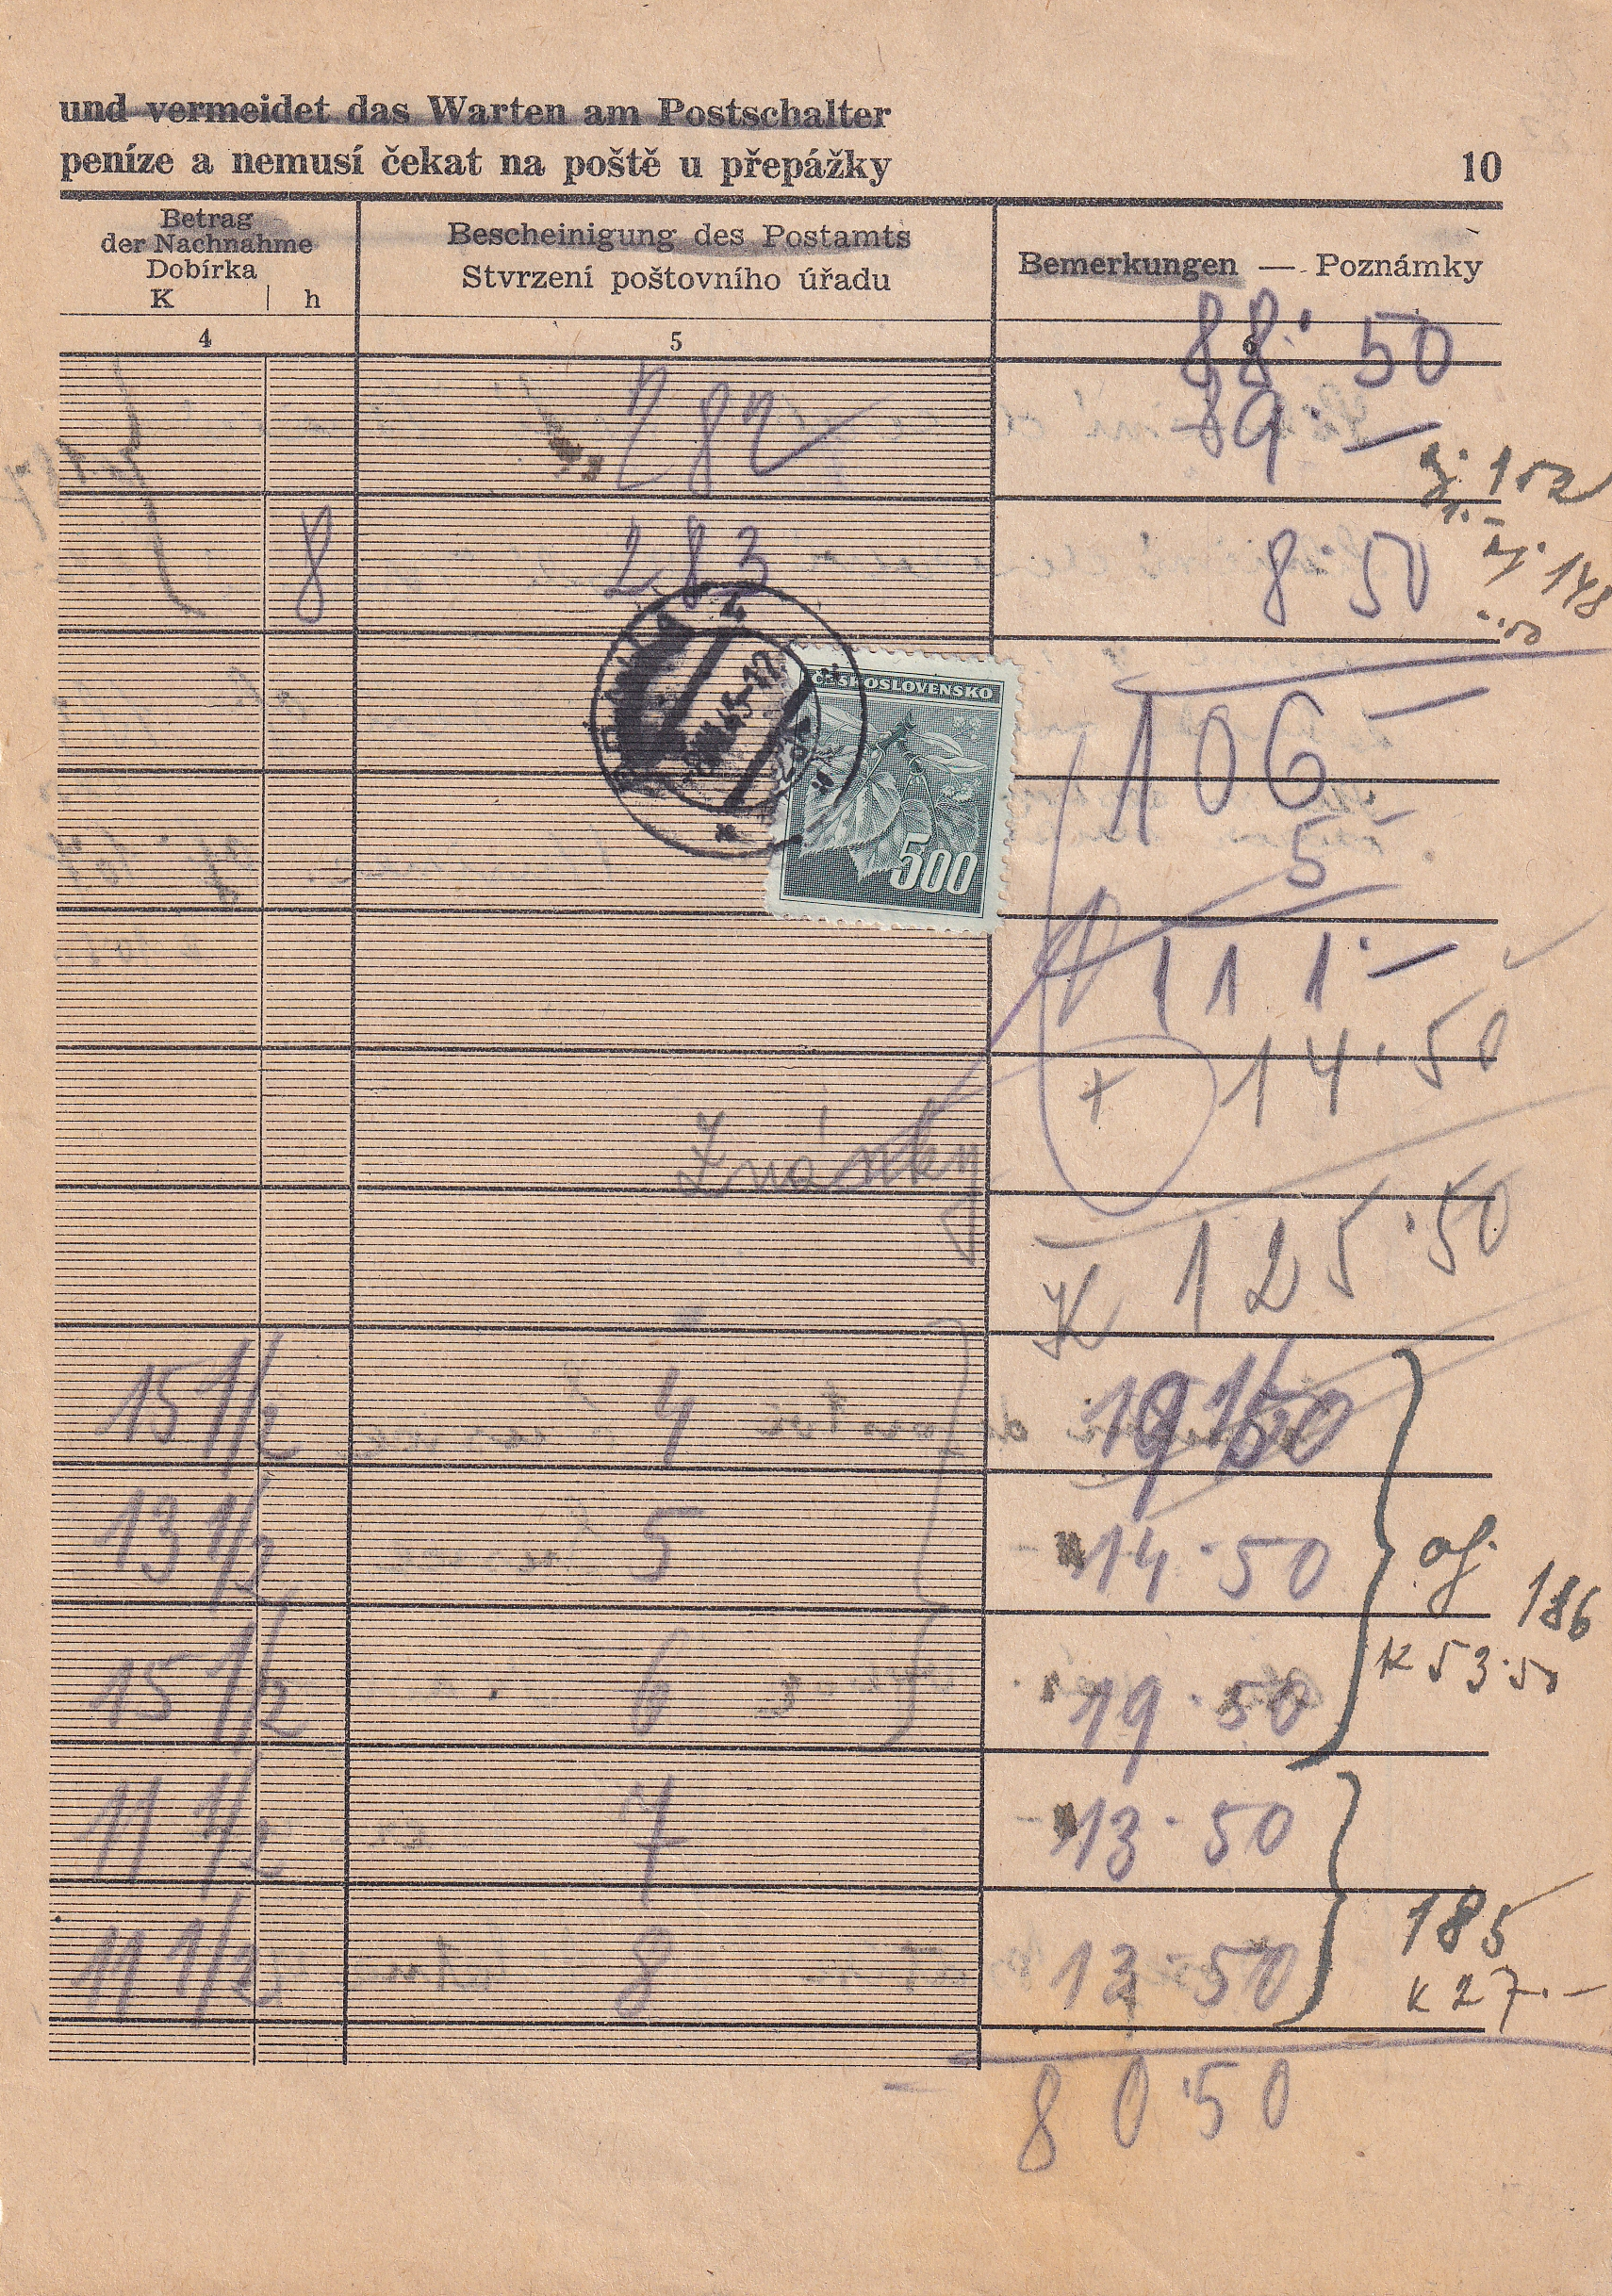 und vermeidet das Warten am Postschalter
peníze a nemusí čekat na poště u přepážky 10
Betrag
der Nachnahme
Dobírka
K h
Bescheinigung des Postamts
Stvrzení poštovního úřadu
Bemerkungen — Poznámky
4 5 6
88· 50
282 89·—
152
8 283 8·50
148
106
ČESKOSLOVENSKO
500
5
111·—
+ 14·50
Známky
K 125·50
15 1/2 4
13 1/2 5 14·50
186
K 53·50
15 1/2 6 19·50
11 1/2 7 13·50
11 1/2 8 13·50
185
K 27.—
80·50